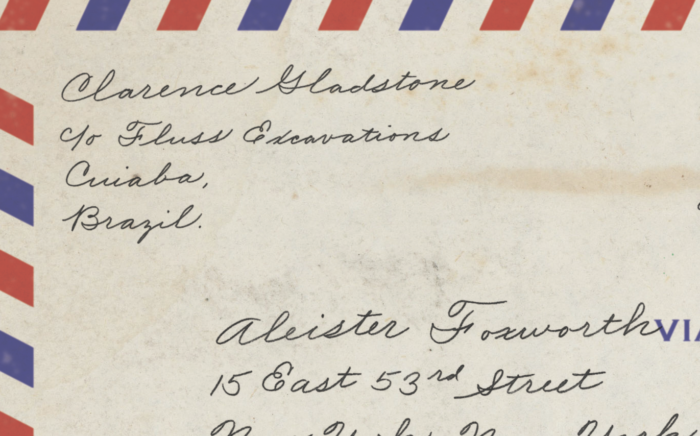 Clarence Gladstone
c/o Fluss Excavations
Cuiaba,
Brazil.
Aleister Foxworth
15 East 53rd Street